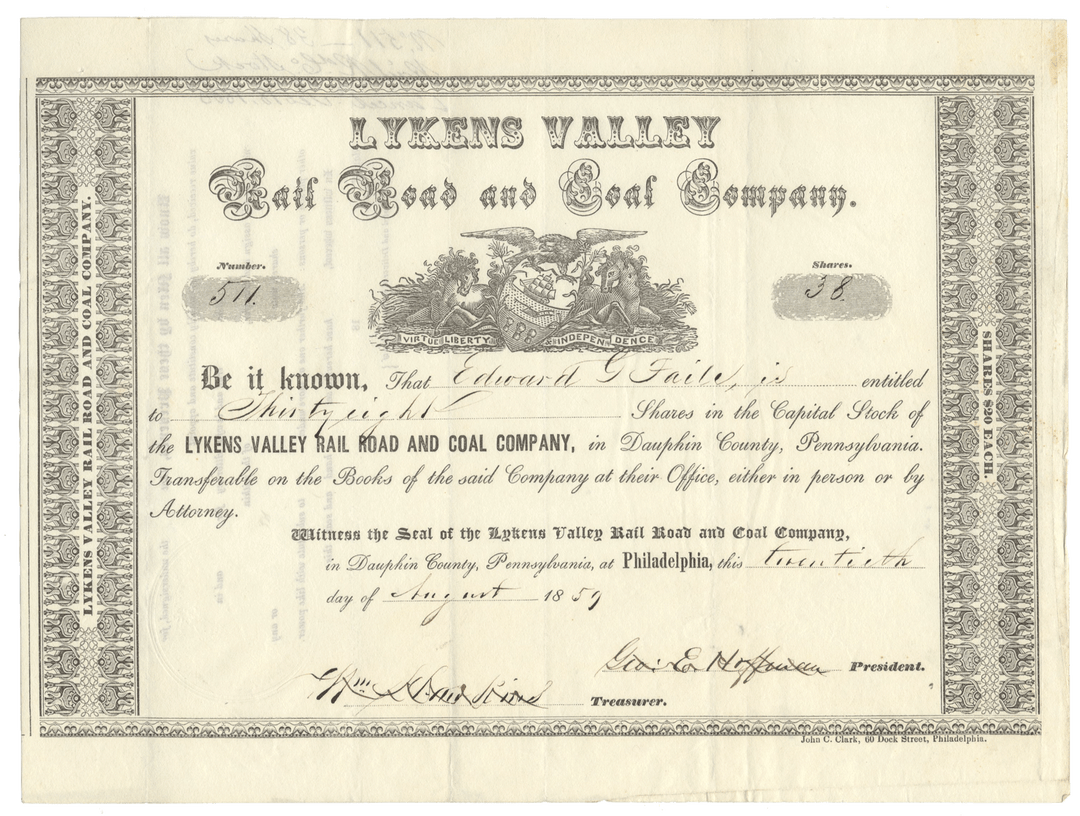 LYKENS VALLEY
Rail Road and Coal Company.
Number.
511.
Shares.
38
VIRTUE LIBERTY & INDEPENDENCE
Be it known, That Edward G Faile, is entitled
to Thirtyeight Shares in the Capital Stock of
the LYKENS VALLEY RAIL ROAD AND COAL COMPANY, in Dauphin County, Pennsylvania.
Transferable on the Books of the said Company at their Office, either in person or by
Attorney.
Witness the Seal of the Lykens Valley Rail Road and Coal Company,
in Dauphin County, Pennsylvania, at Philadelphia, this twentieth
day of August 1859
Geo: E. Hoffman President.
Wm Treasurer.
John C. Clark, 60 Dock Street, Philadelphia.
LYKENS VALLEY RAIL ROAD AND COAL COMPANY.
SHARES $20 EACH.